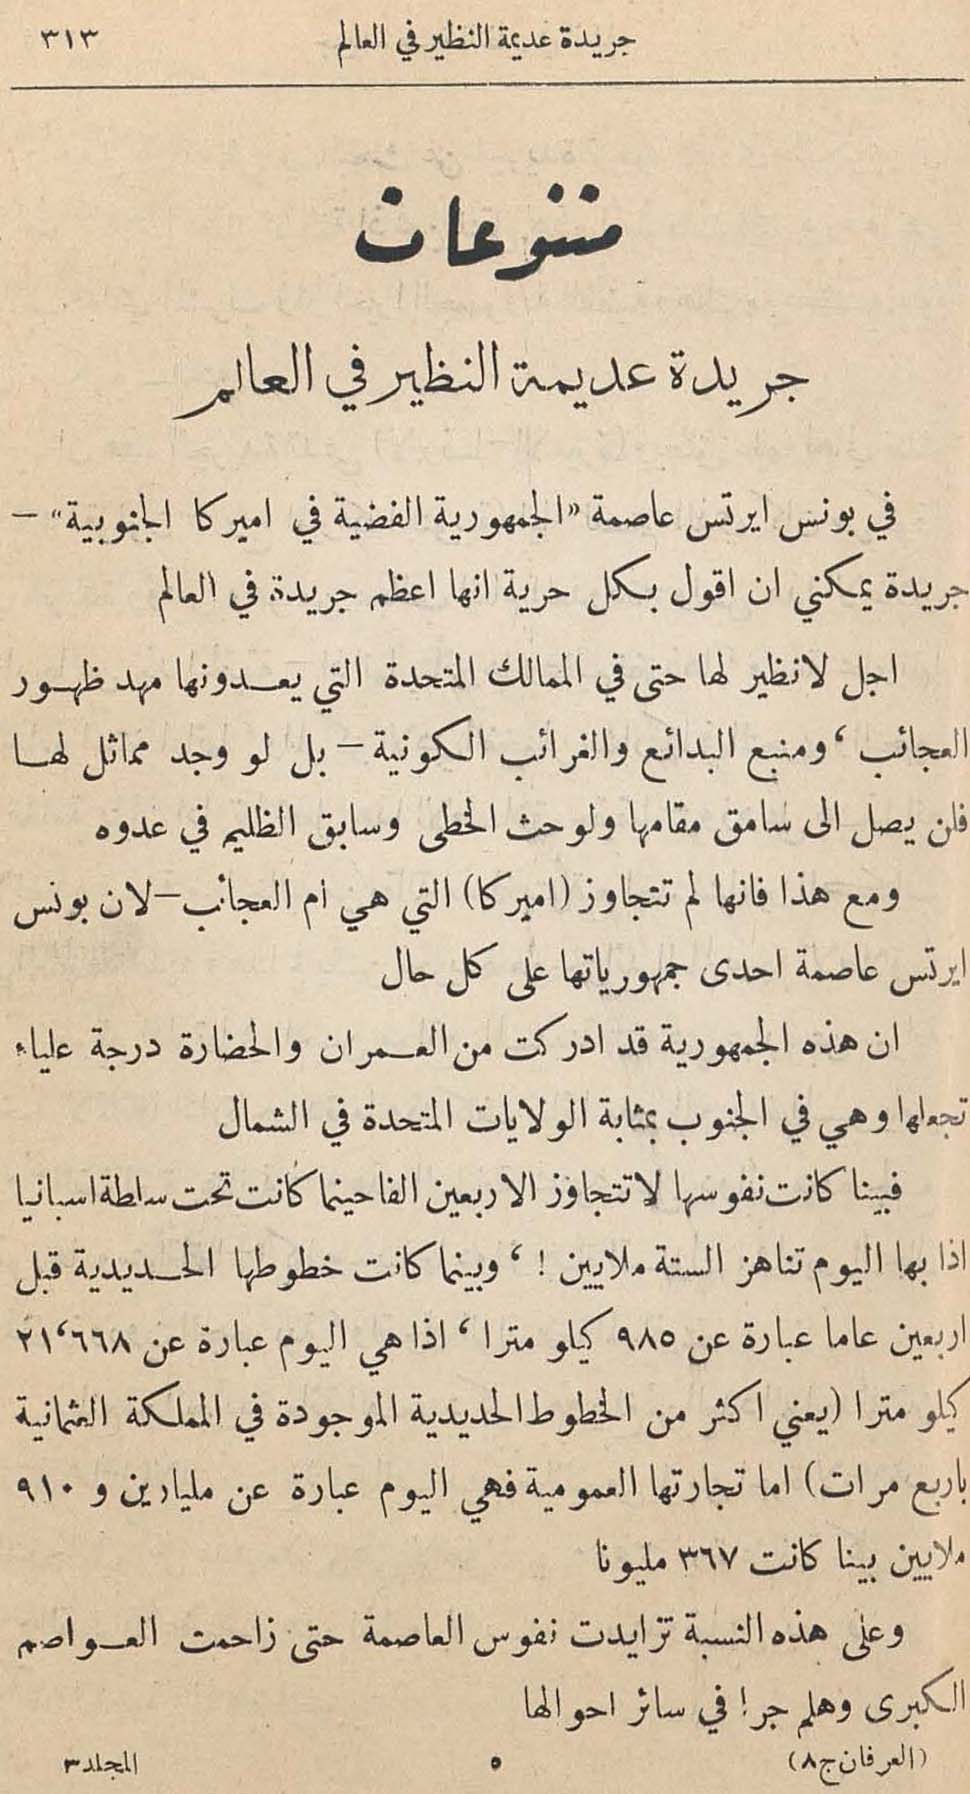 جريدة عديمة النظير في العالم ٣١٣
متنوعات
جريدة عديمة النظير في العالم
في بونس ايرتس عاصمة «الجمهورية الفضية في اميركا الجنوبية» –
جريدة يمكنني ان اقول بكل حرية انها اعظم جريدة في العالم
اجل لانظير لها حتى في الممالك المتحدة التي يعدونها مهد ظهور
العجائب ، ومنبع البدائع والغرائب الكونية – بل لو وجد مماثل لها
فلن يصل الى سامق مقامها ولو حث الخطى وسابق الظليم في عدوه
ومع هذا فانها لم تتجاوز (اميركا) التي هي ام العجائب – لان بونس
ايرتس عاصمة احدى جمهورياتها على كل حال
ان هذه الجمهورية قد ادركت من العمران والحضارة درجة علياء
تجعلها وهي في الجنوب بمثابة الولايات المتحدة في الشمال
فبينا كانت نفوسها لا تتجاوز الاربعين الفا حينما كانت تحت سلطة اسبانيا
اذا بها اليوم تناهز الستة ملايين ! ، وبينما كانت خطوطها الحديدية قبل
اربعين عاما عبارة عن ٩٨٥ كيلو مترا ، اذا هي اليوم عبارة عن ٢١،٦٦٨
كيلو مترا (يعني اكثر من الخطوط الحديدية الموجودة في المملكة العثمانية
باربع مرات) اما تجارتها العمومية فهي اليوم عبارة عن مليارين و ٩١٠
ملايين بينا كانت ٣٦٧ مليونا
وعلى هذه النسبة تزايدت نفوس العاصمة حتى زاحمت العواصم
الكبرى وهلم جرا في سائر احوالها
(العرفان ج٨) ٥ المجلد ٣